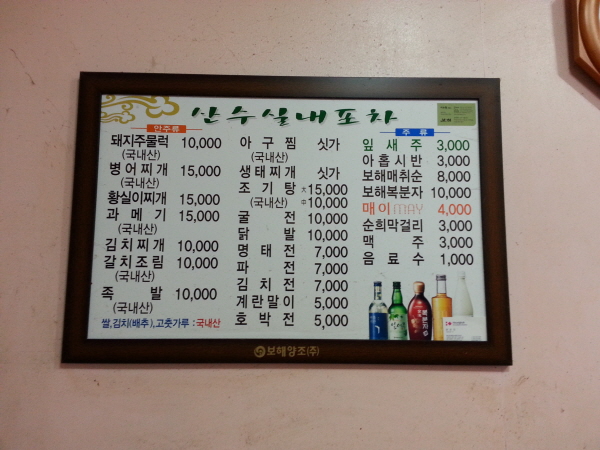 산수실내포차
안주류
돼지주물럭 10,000
(국내산)
병어찌개 15,000
(국내산)
황실이찌개 15,000
과메기 15,000
(국내산)
김치찌개 10,000
갈치조림 10,000
(국내산)
족발 10,000
(국내산)
쌀,김치(배추),고춧가루:국내산
아구찜 싯가
(국내산)
생태찌개 싯가
조기탕 大 15,000
(국내산) 中 10,000
굴전 10,000
닭발 10,000
명태전 7,000
파전 7,000
김치전 7,000
계란말이 5,000
호박전 5,000
주류
잎새주 3,000
아홉시반 3,000
보해매취순 8,000
보해복분자 10,000
매이 MAY 4,000
순희막걸리 3,000
맥주 3,000
음료수 1,000
보해양조(주)